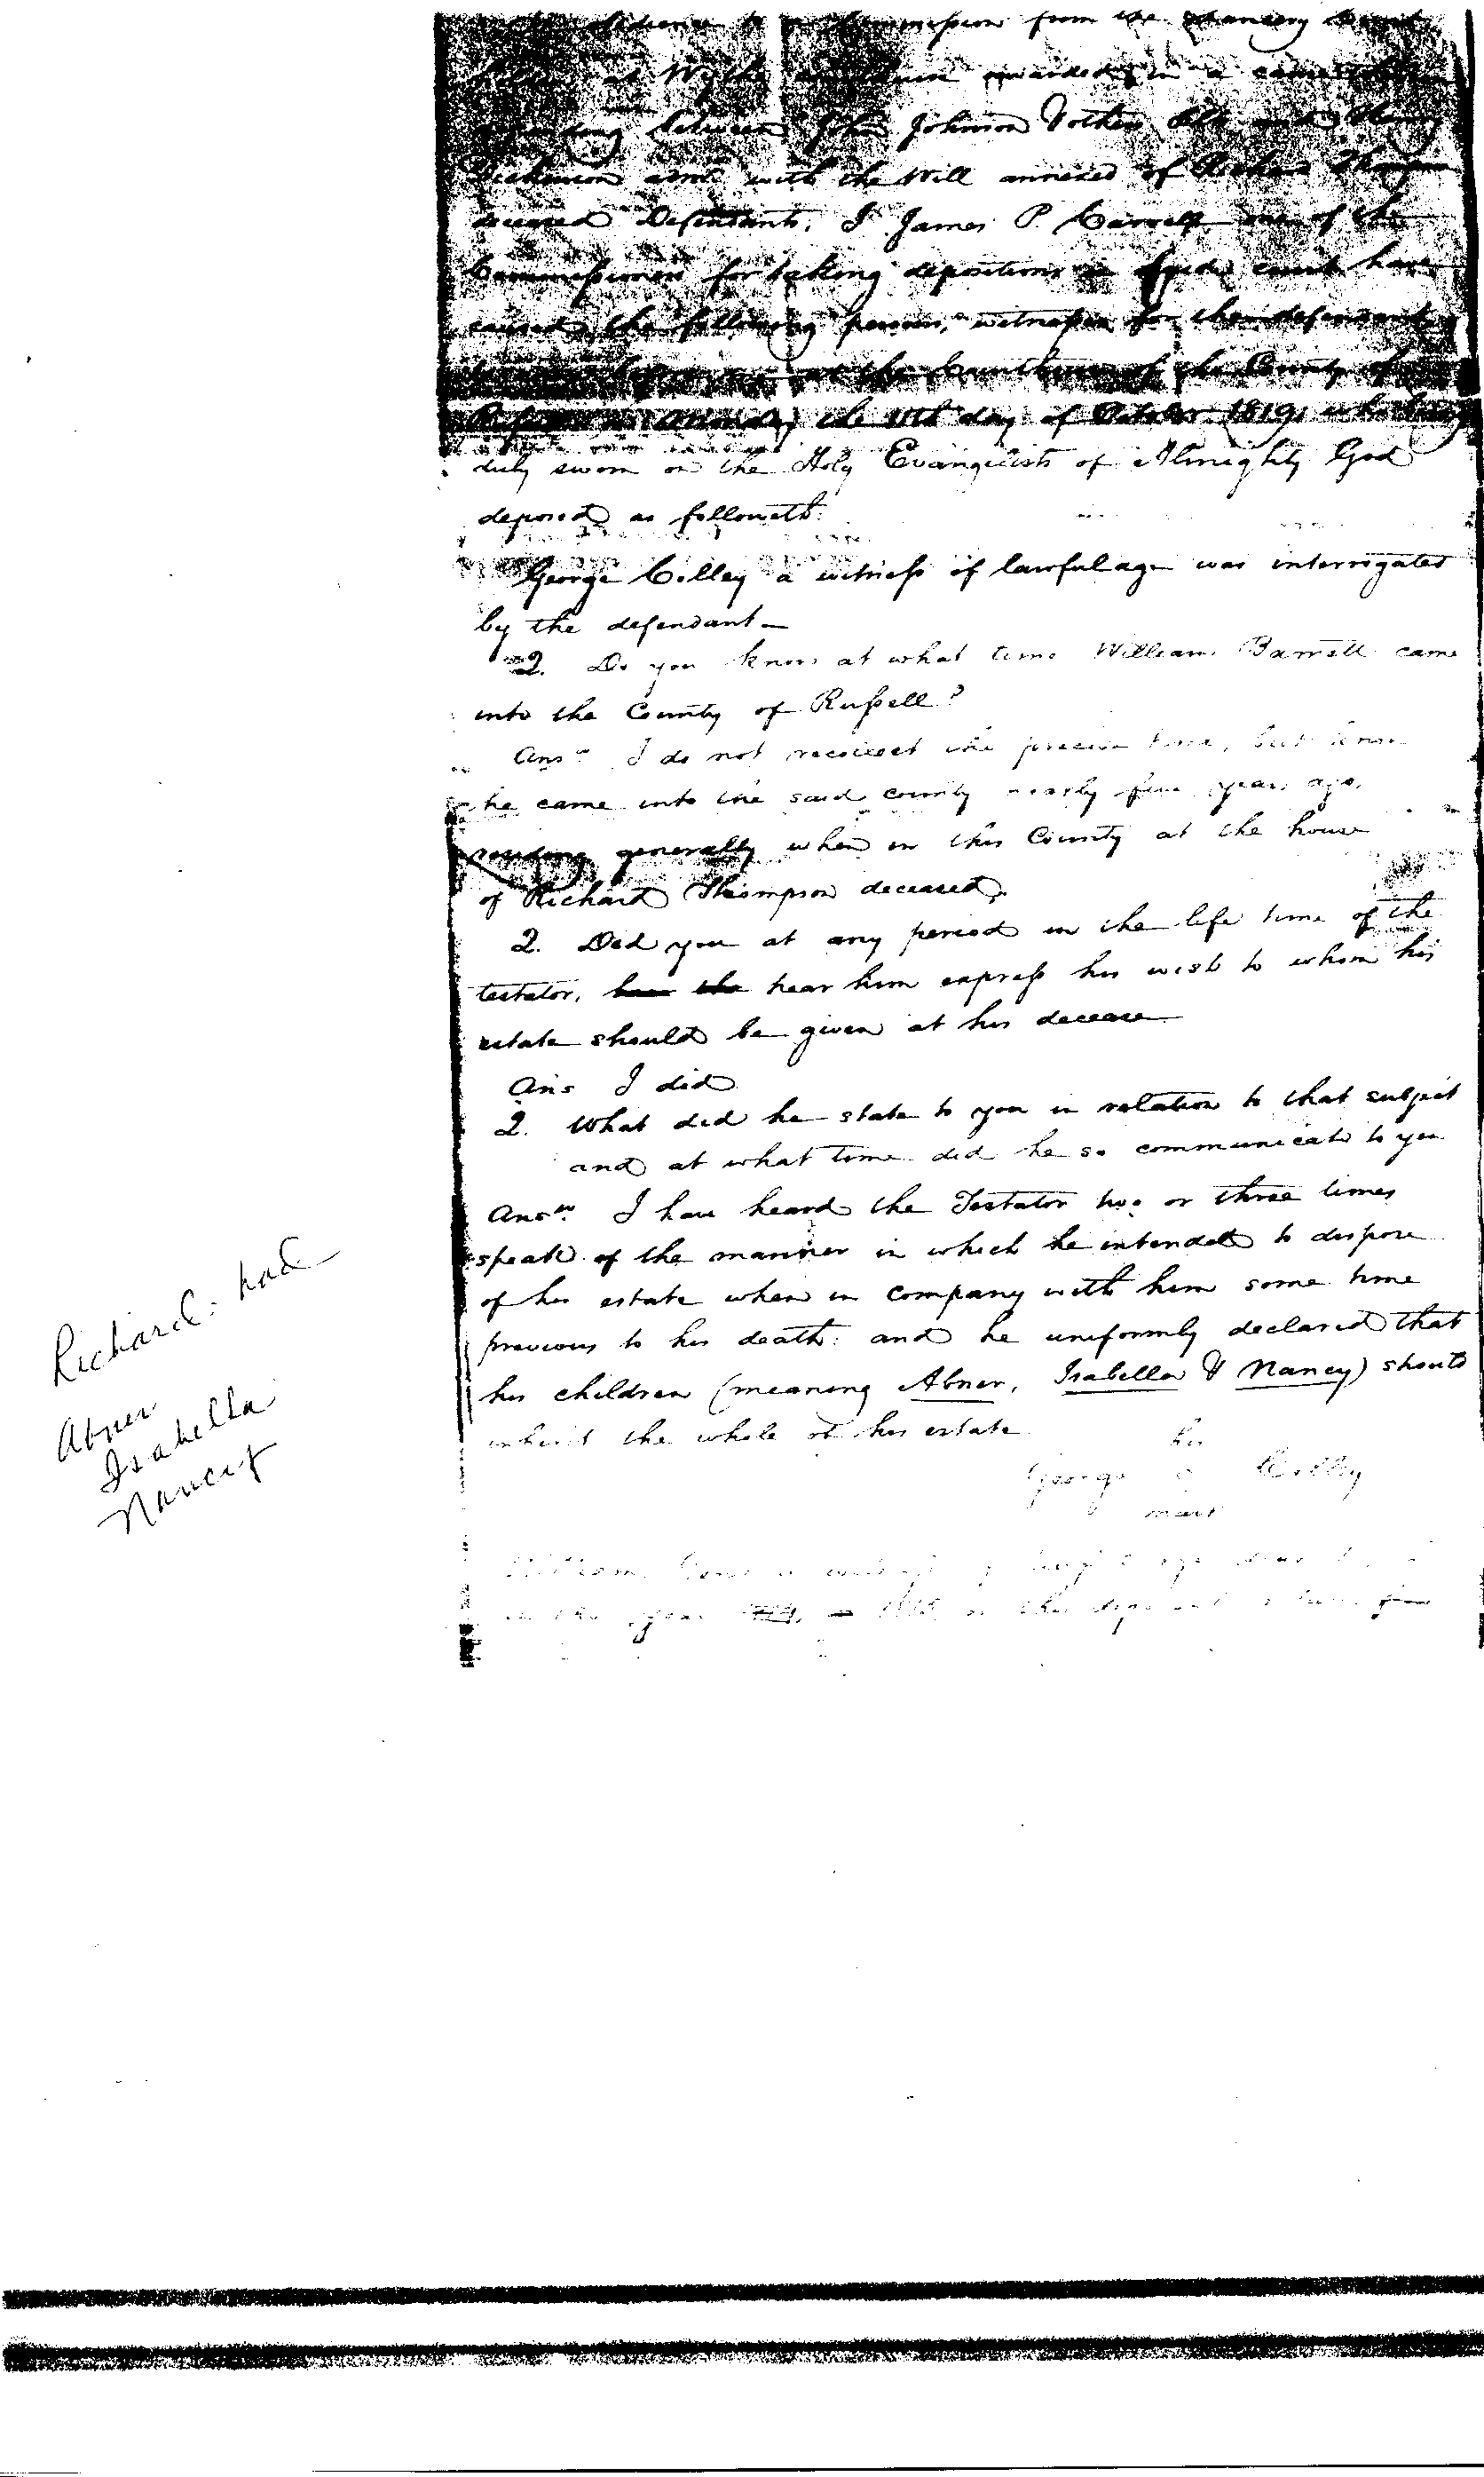 from the Chancery
at Wythe awarded in a cause
between John Johnson & others and Henry
Dickenson admr with the Will annexed of Richard
deceased Defendants, I James P. Carrell one of the
Commissioners for taking depositions in said court have
caused the following persons, witnesses for the defendant
at the Courthouse of the County of
the 11th day of October 1819, who being
duly sworn on the Holy Evangelists of Almighty God
deposed as followeth.
George Colley a witness of lawful age was interrogated
by the defendant
Q. Do you know at what time William came
into the County of Russell?
Ansr. I do not recollect the precise time, but know
he came into the said county nearly five years ago,
residing generally when in this County at the house
of Richard Thompson deceased.
Q. Did you at any period in the life time of the
testator, hear him express his wish to whom his
estate should be given at his decease
Ans I did
Q. What did he state to you in relation to that subject
and at what time did he so communicate to you
Ansr. I have heard the Testator two or three times
speak of the manner in which he intended to dispose
of his estate when in company with him some time
previous to his death: and he uniformly declared that
his children (meaning Abner, Isabella & Nancy) should
inherit the whole of his estate
his
George Colley
mark
William a witness of age
in the year
Richard had
Abner
Isabella
Nancy